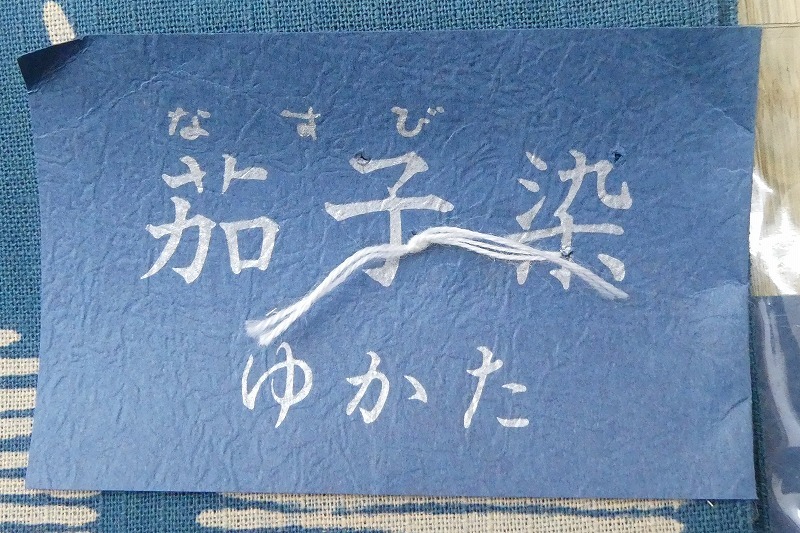 なすび
茄子染
ゆかた